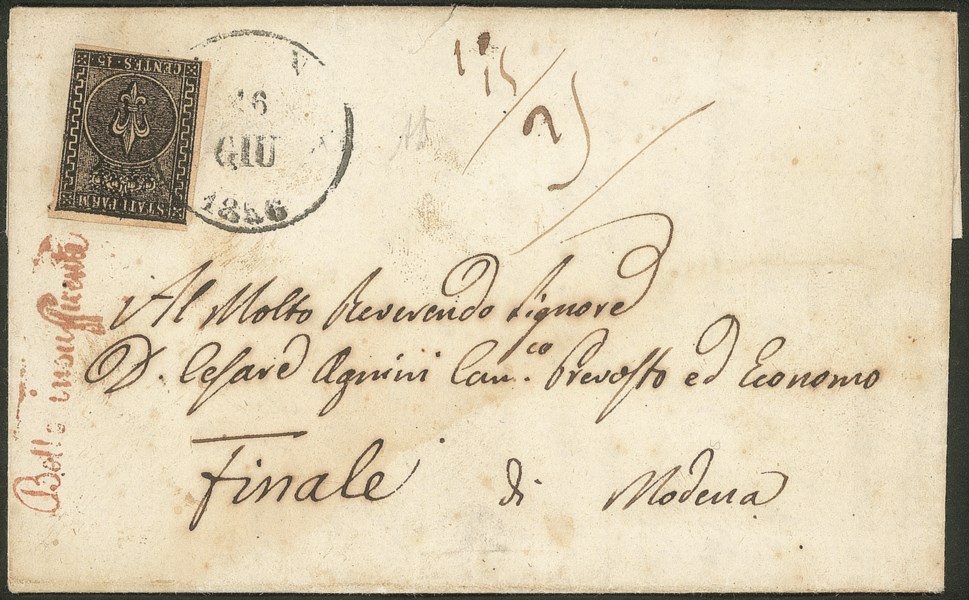 CENTES. 15
STATI PARM
16
GIU
1856
15
25
Bollo insufficiente
Al Molto Reverendo Signore
D. Cesare Agnini Can.co Prevosto ed Economo
Finale di Modena